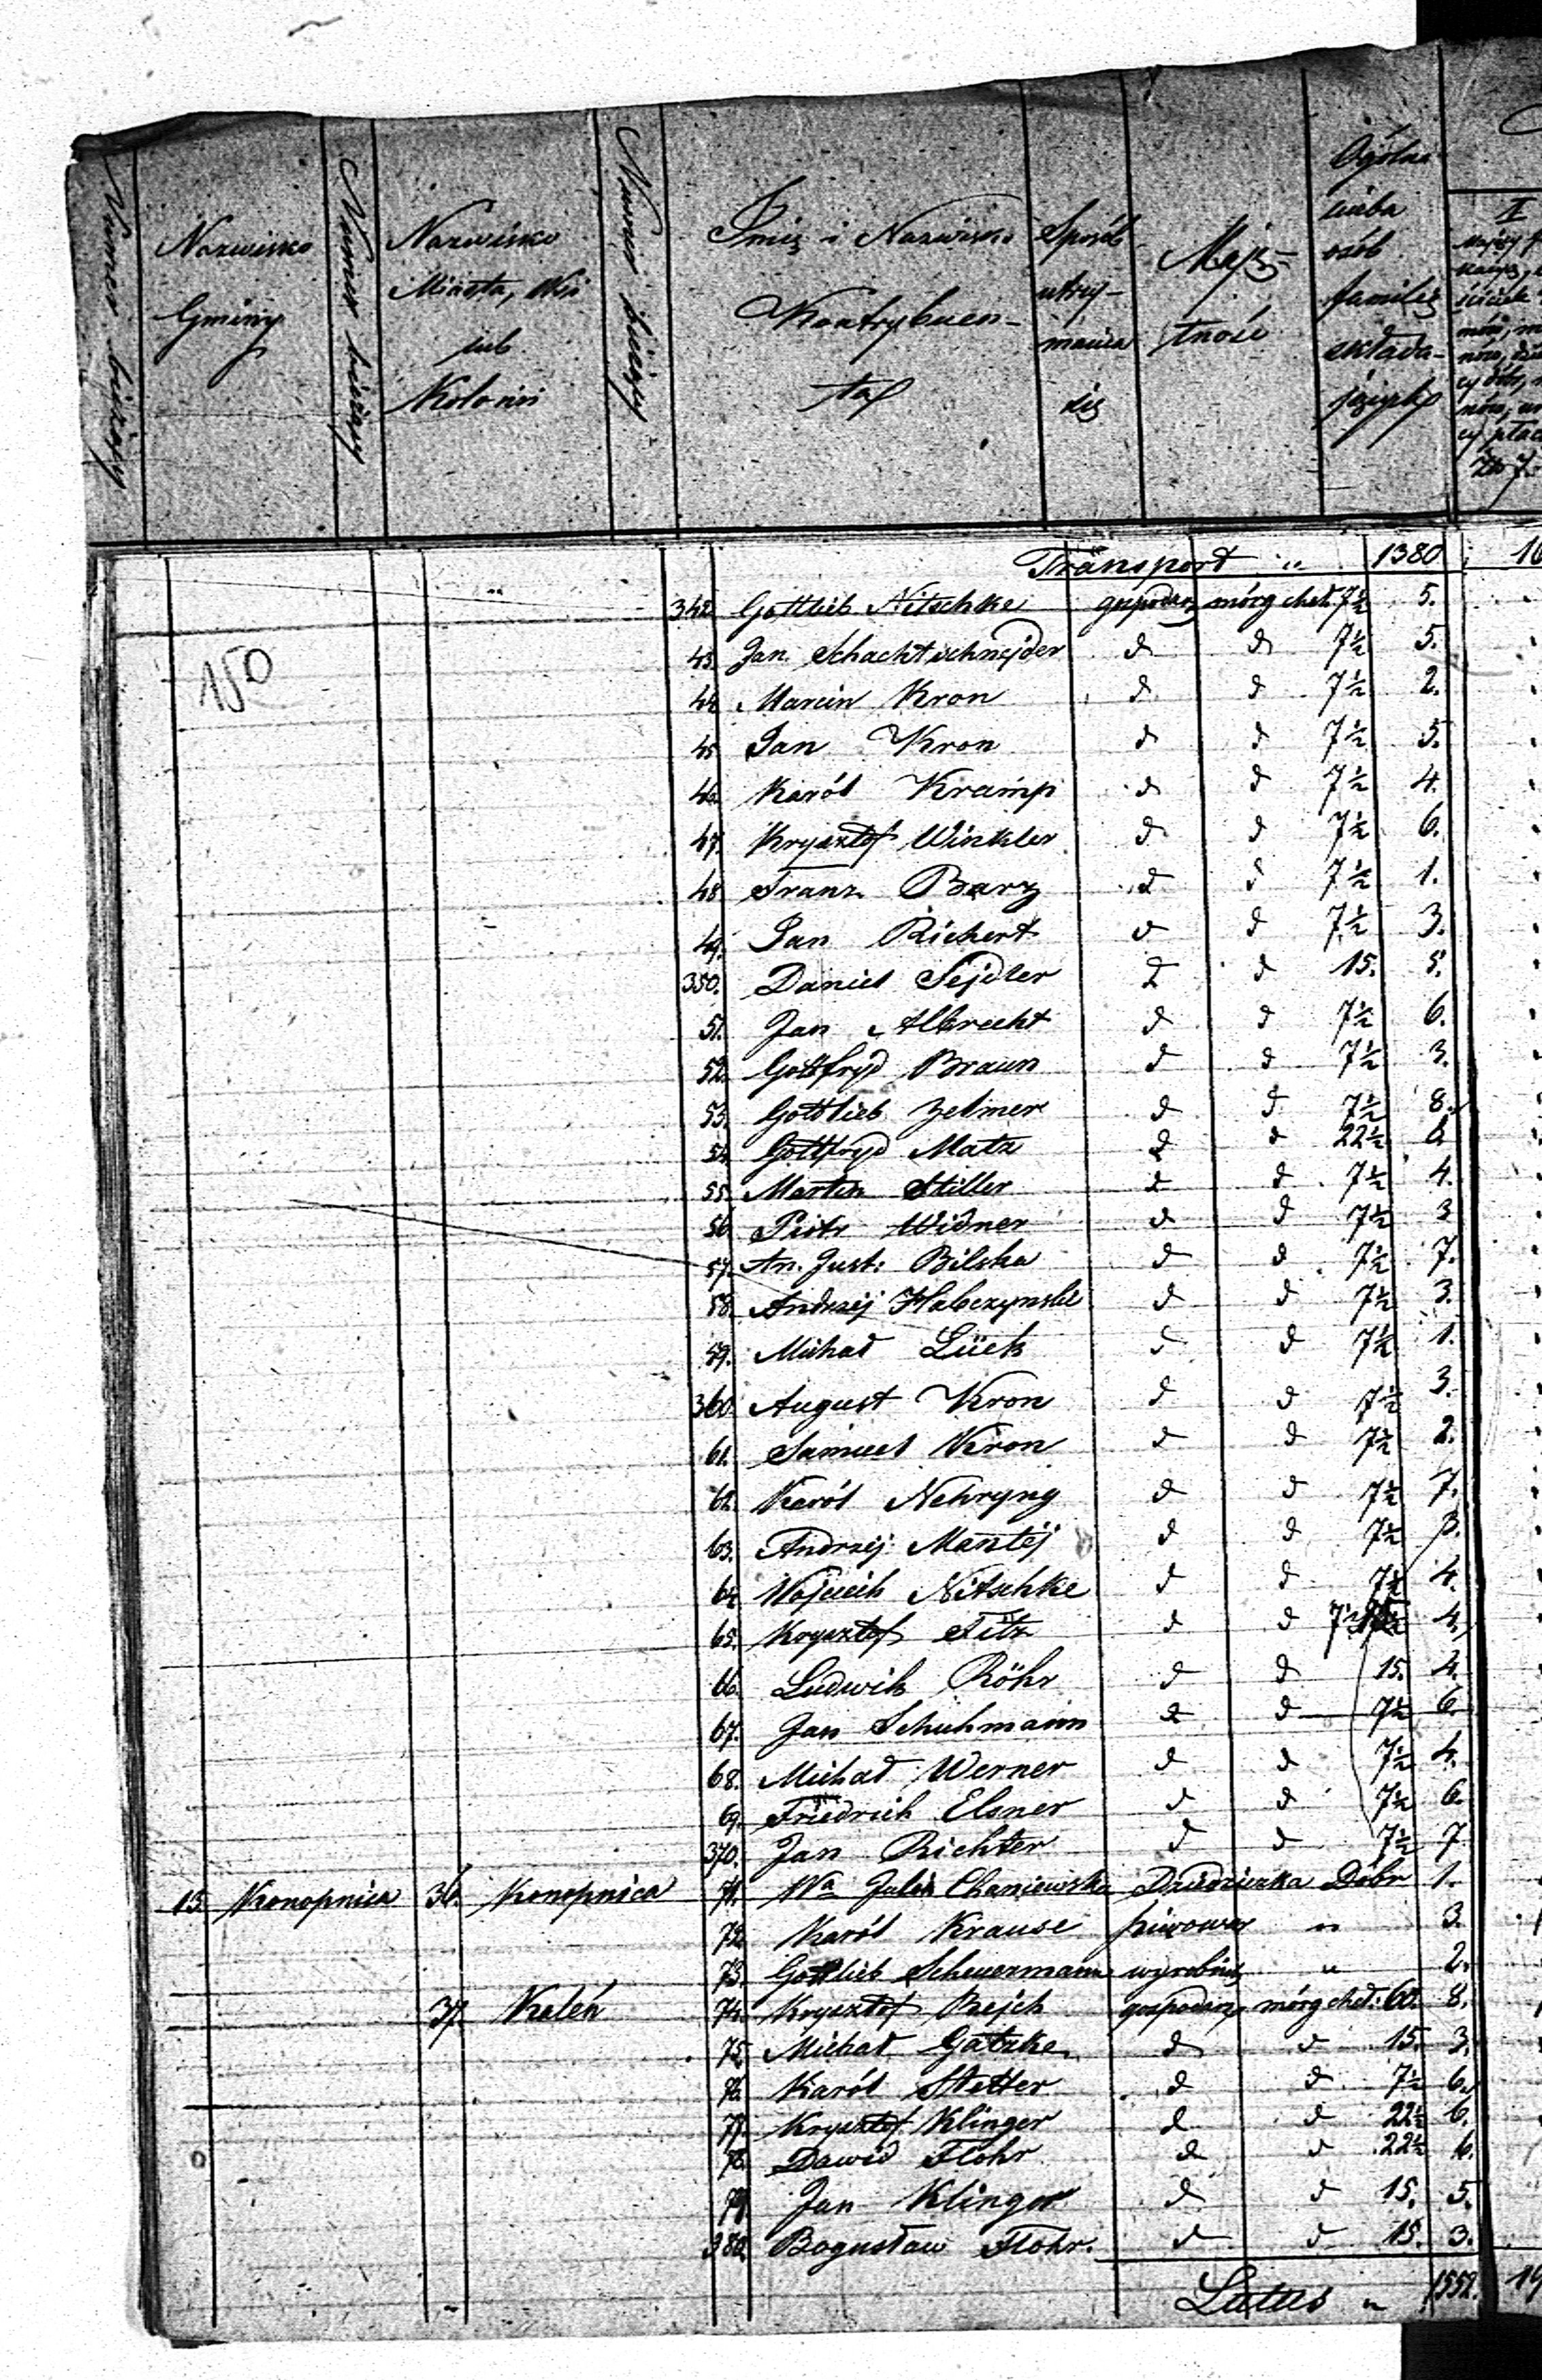 Numer bieżący
Nazwisko Gminy
Numer bieżący
Nazwisko Miasta, Wsi lub Kolonii
Numer bieżący
Imię i Nazwisko Kontrybuenta
Sposób utrzymania się
Majątność
Ogólna liczba osób familię składających
II
Transport " 1380
150
342 Gottlieb Nitschke gospodarz mórg cheł. 7½ 5.
43. Jan Schachtschnejder d d 7½ 5.
44. Marcin Kron d d 7½ 2.
45. Jan Kron d d 7½ 5.
46. Karól Kramp d d 7½ 4.
47. Krysztof Winkler d d 7½ 6.
48. Franz Barz d d 7½ 1.
49. Jan Richert d d 7½ 3.
350. Daniel Sejdler d d 15. 5.
51. Jan Albrecht d d 7½ 6.
52. Gottfryd Braun d d 7½ 3.
53. Gottlieb Zelmer d d 7½ 8.
54. Gottfryd Matz d d 22½ 6.
55. Martin Stiller d d 7½ 4.
56. Piotr Widner d d 7½ 3
57. An. Just: Bilska d d 7½ 7.
58. Andrzéj Habczynski d d 7½ 3.
59. Michał Lück d d 7½ 1.
360. August Kron d d 7½ 3.
61. Samuel Kron d d 7½ 2.
62. Karól Nehryng d d 7½ 7.
63. Andrzéj Mantéj d d 7½ 3.
64. Wojciech Nitschke d d 7½ 4.
65. Krysztof Fitz d d 7½ 4.
66. Ludwik Röhr d d 15. 4.
67. Jan Schuhmann d d 7½ 6.
68. Michał Werner d d 7½ 4.
69. Friedrich Elsner d d 7½ 6.
370. Jan Richter d d 7½ 7
13. Konopnica 36. Konopnica 71. Wa Julia Chaniewska Dziedziczka Dóbr 1.
72. Karól Krause piwowar " 3.
73. Gottlieb Scheuermann wyrobnik " 2.
37. Kaleń 74. Krysztof Rejch gospodarz mórg cheł: 60. 8.
75. Michał Gatzke d d 15. 3.
76. Karól Stetter d d 7½ 6.
77. Krysztof Klinger d d 22½ 6.
78. Dawid Flohr d d 22½ 6.
79. Jan Klinger d d 15. 5.
380. Bogusław Flohr. d d 15. 3.
Latus " 1559.